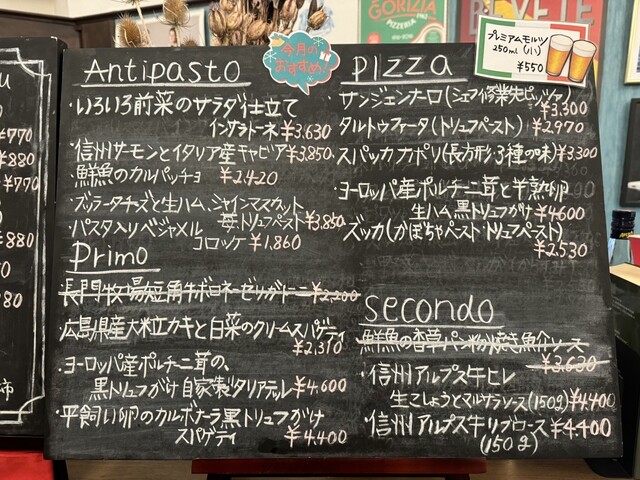 Antipasto
今月の
おすすめ!
・いろいろ前菜のサラダ仕立て
インサラトーネ ¥3,630
・信州サーモンとイタリア産キャビア ¥3,850
・鮮魚のカルパッチョ ¥2,420
・ブッラータチーズと生ハム、シャインマスカット
苺・トリュフペースト ¥3,850
・パスタ入りベシャメル
コロッケ ¥1,860
Primo
・長門牧場短角牛ボロネーゼリガトーニ ¥2,200
・広島県産大粒カキと白菜のクリームスパゲティ
¥2,310
・ヨーロッパ産ポルチーニ茸の、
黒トリュフがけ 自家製タリアテッレ ¥4,600
・平飼い卵のカルボナーラ黒トリュフがけ
スパゲティ ¥4,400
Pizza
・サンジェンナーロ(シェフ修業先ピッツァ)
¥3,300
タルトゥファータ(トリュフペースト) ¥2,970
・スパッカナポリ(長方形・3種の味) ¥3,300
・ヨーロッパ産ポルチーニ茸と半熟卵
生ハム、黒トリュフがけ ¥4,600
ズッカ(かぼちゃペースト・トリュフペースト)
¥2,530
Secondo
・鮮魚の香草パン粉焼き魚介ソース
¥3,630
・信州アルプス牛ヒレ
生こしょうとマルサラソース(150g) ¥4,400
・信州アルプス牛リブロース ¥4,400
(150g)
プレミアムモルツ
250ml (小)
¥550
GORIZIA
PIZZERIA
¥770
¥880
¥770
880